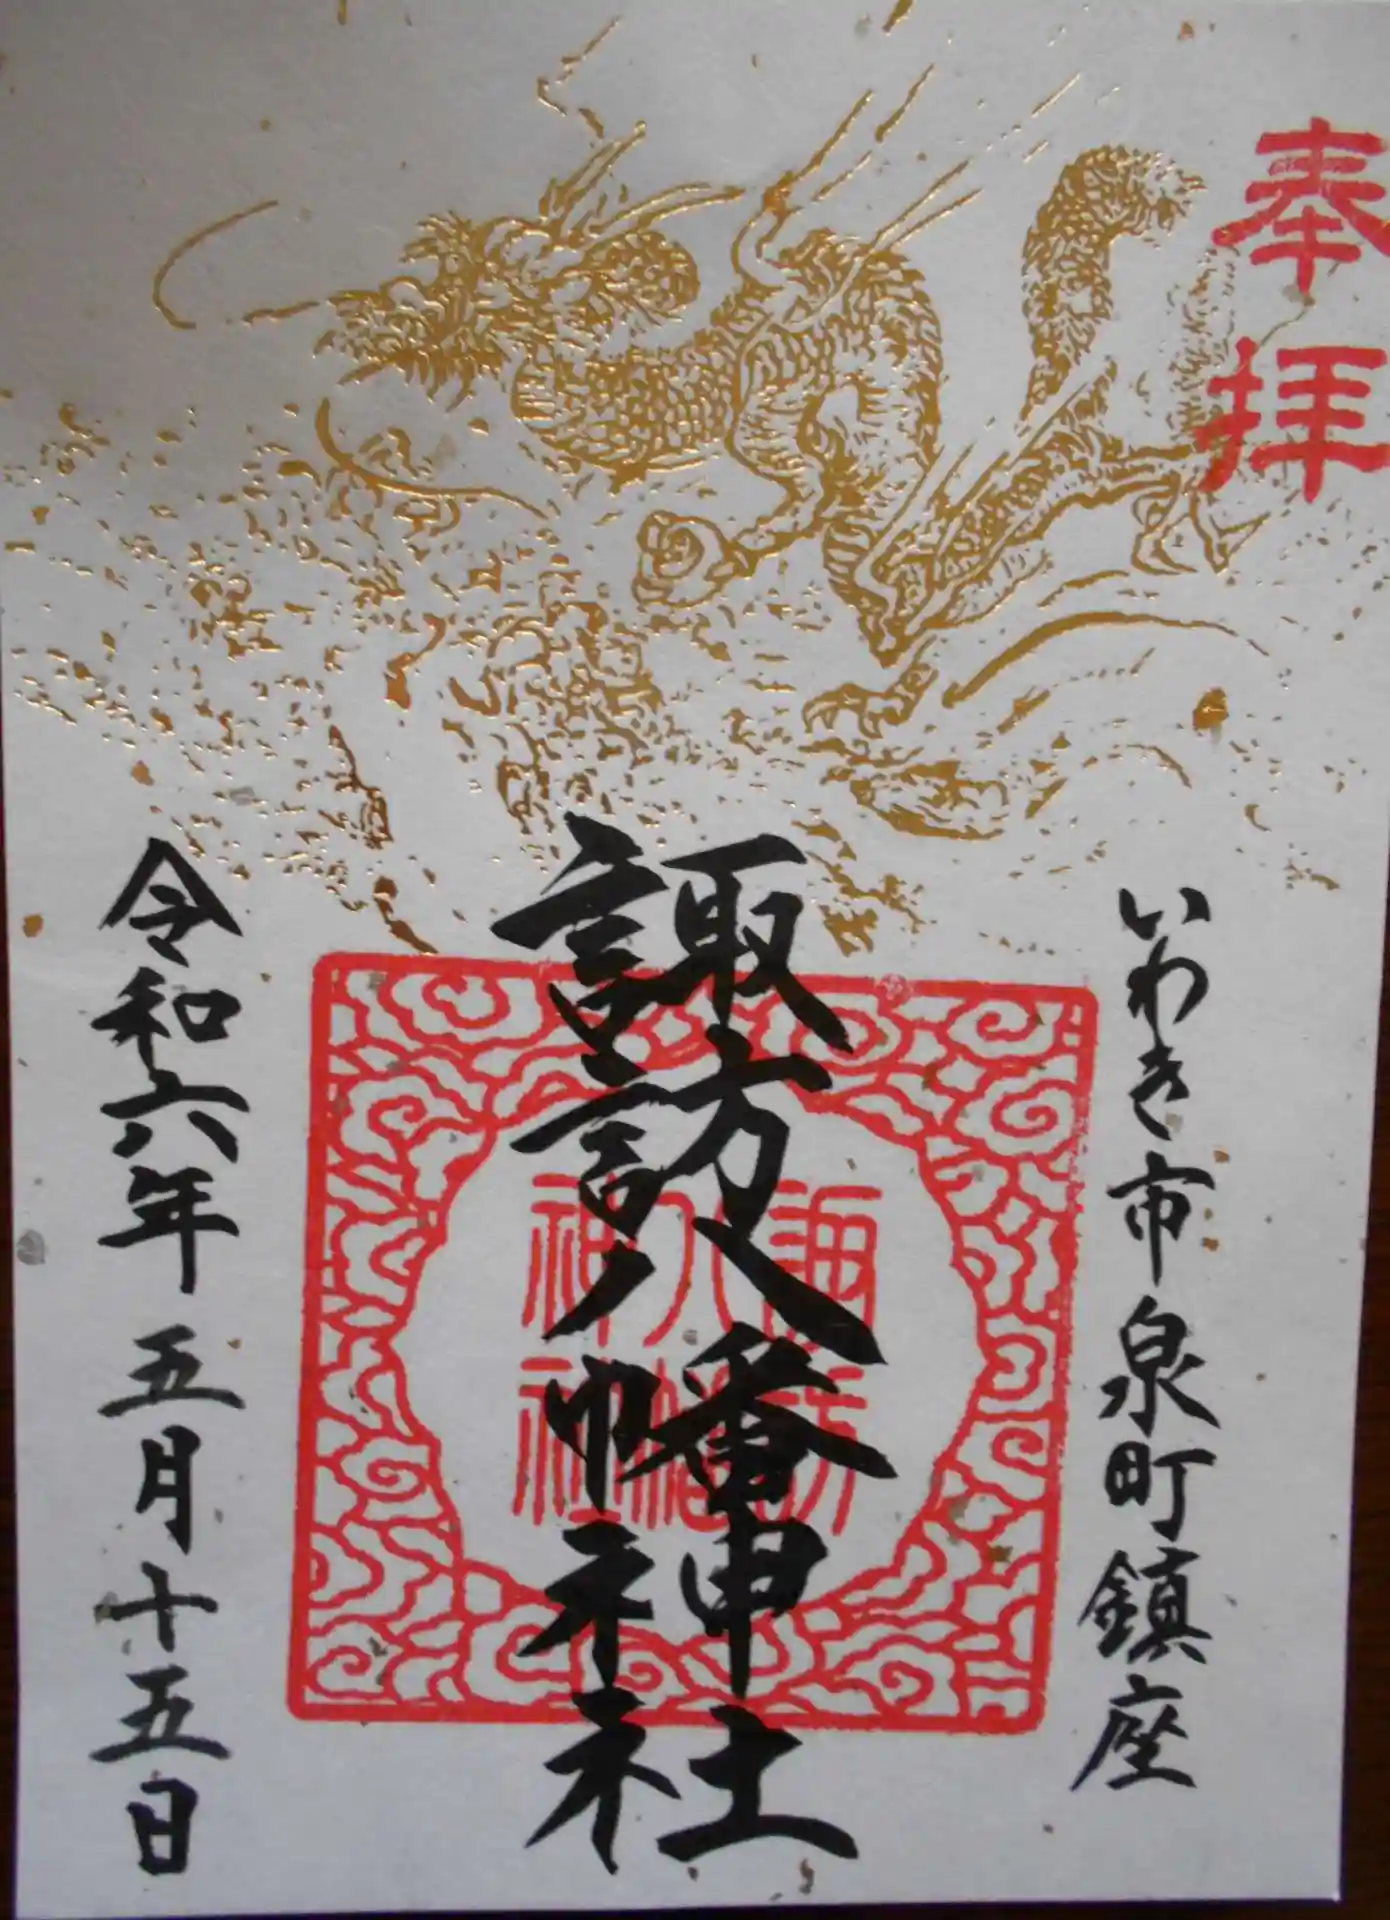 奉拝
いわき市泉町鎮座
諏訪八幡神社
諏訪
八幡
神社
令和六年五月十五日